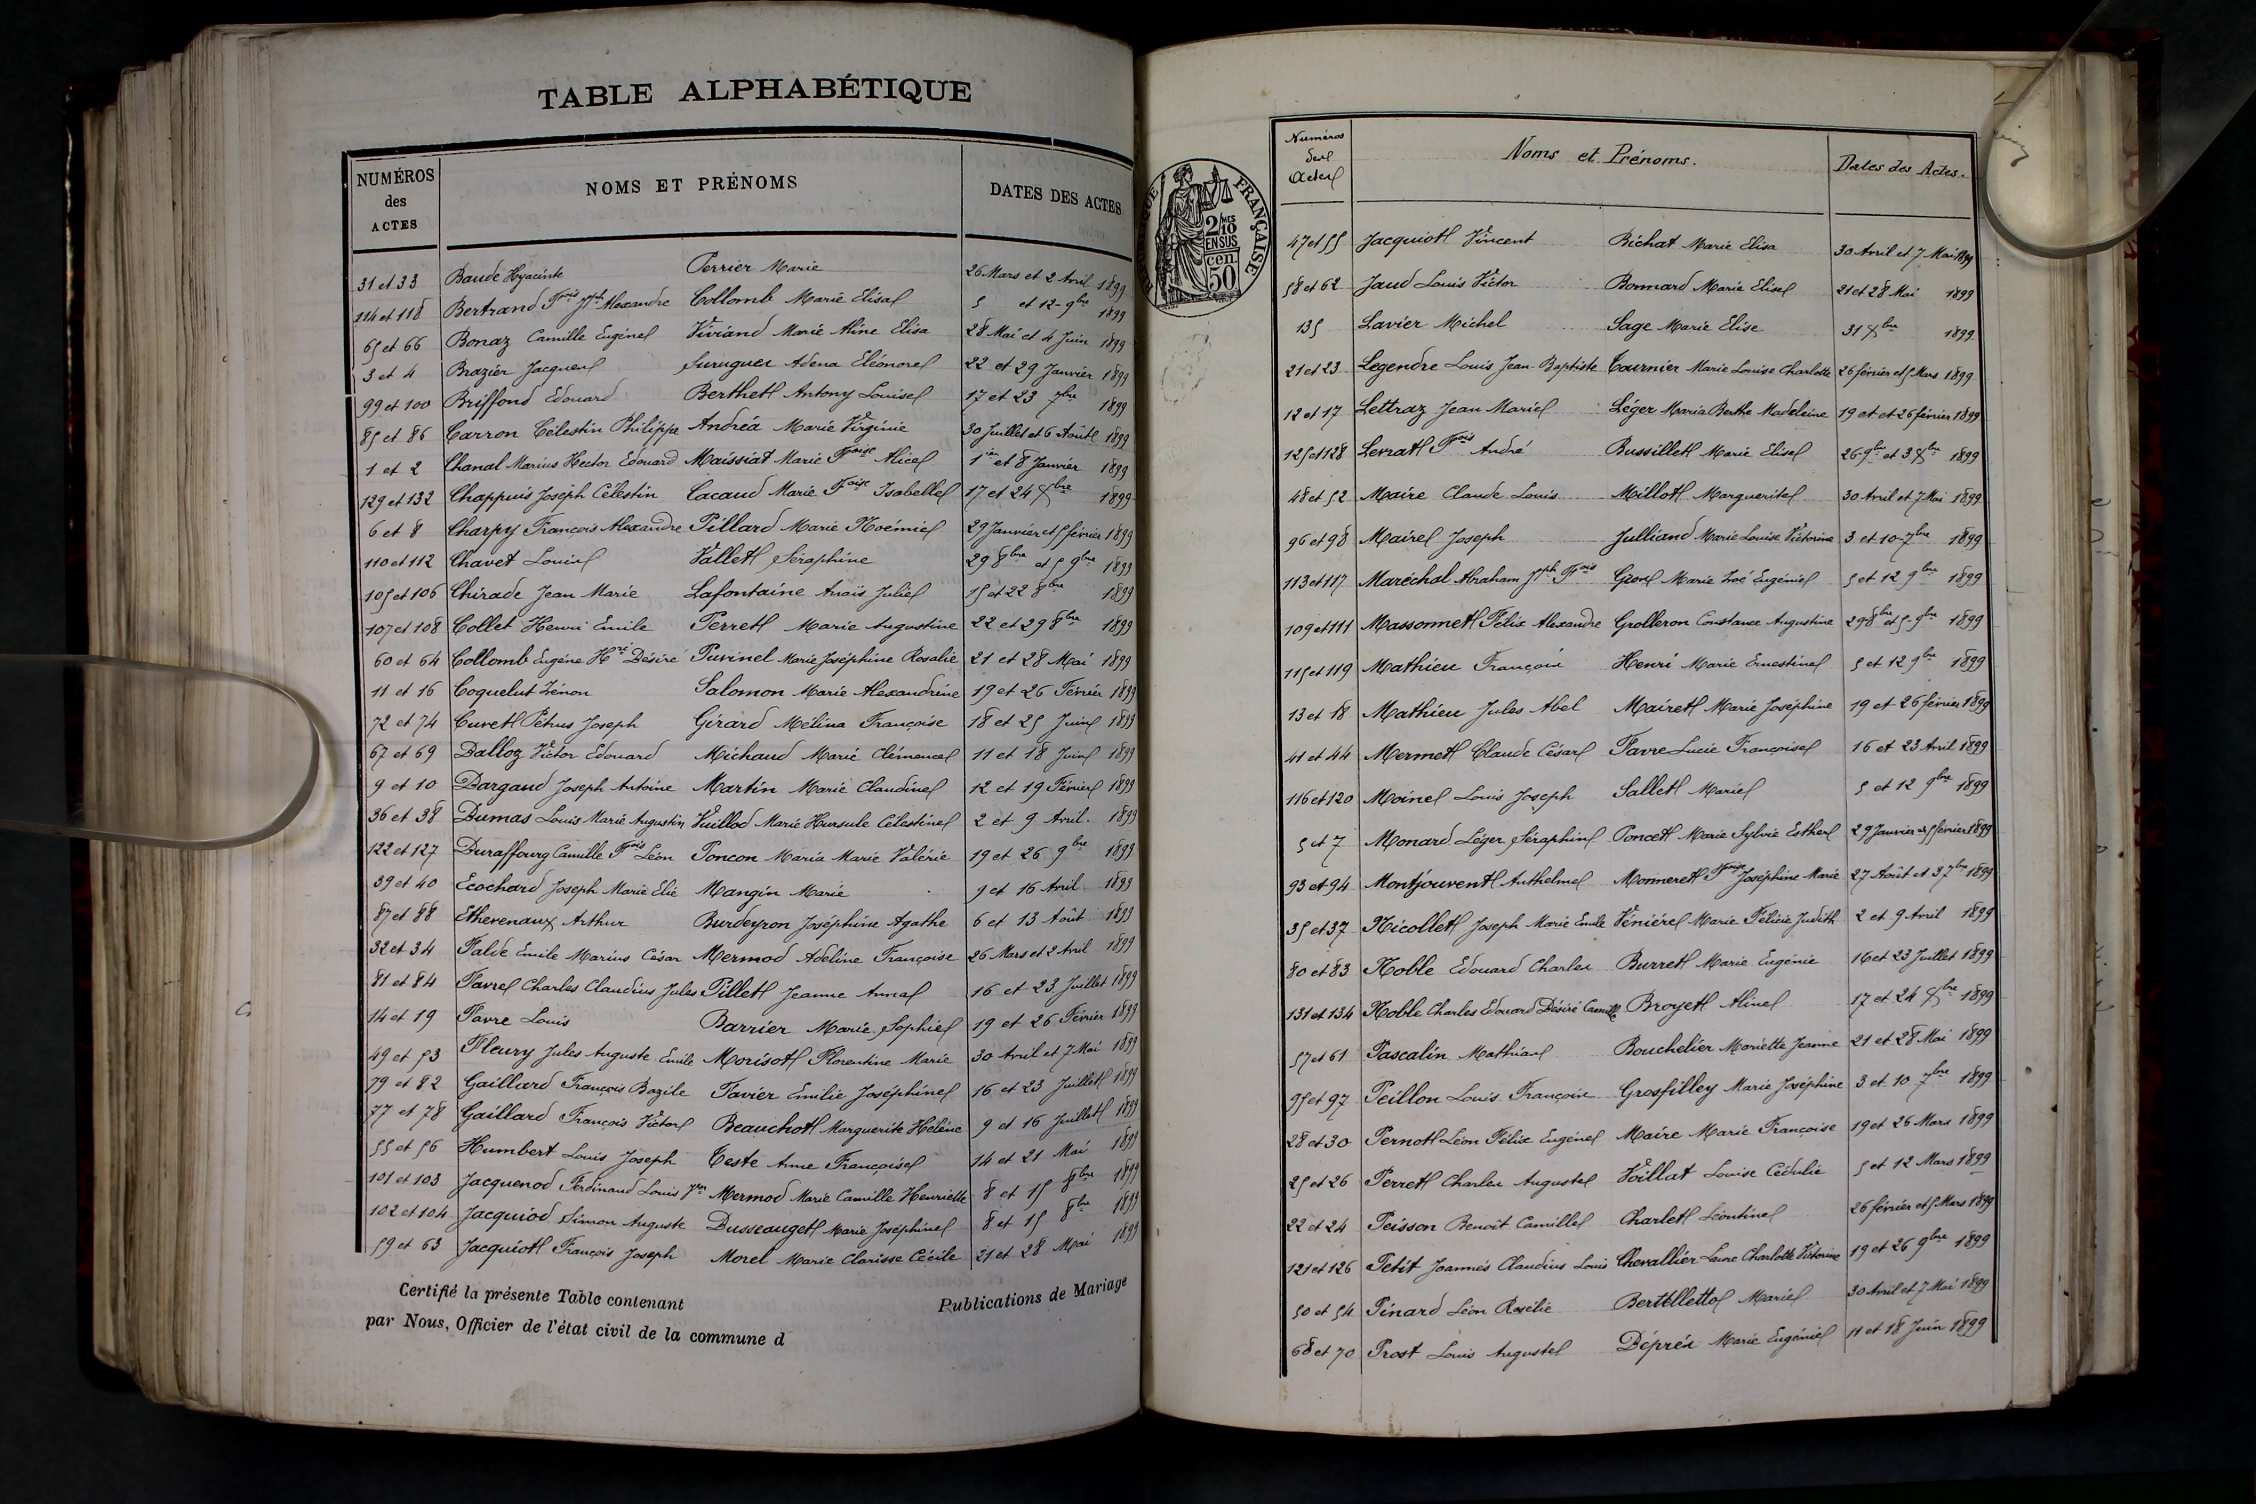 TABLE ALPHABÉTIQUE
NUMÉROS des ACTES NOMS ET PRÉNOMS DATES DES ACTES
31 et 33 Baude Hyacinte Perrier Marie 26 Mars et 2 Avril 1899
114 et 118 Bertrand Fçois Jph Alexandre Collomb Marie Elisa 5 et 12 9bre 1899
65 et 66 Bonaz Camille Eugène Viviand Marie Aline Elisa 28 Mai et 4 Juin 1899
3 et 4 Brazier Jacques Suruguer Adena Eléonore 22 et 29 Janvier 1899
99 et 100 Briffond Edouard Berthet Antony Louise 17 et 23 7bre 1899
85 et 86 Carron Célestin Philippe Andréa Marie Virginie 30 Juillet et 6 Août 1899
1 et 2 Chanal Marius Hector Edouard Maissiat Marie Fçoise Alice 1ier et 8 Janvier 1899
129 et 132 Chappuis Joseph Célestin Cacaud Marie Fçoise Isabelle 17 et 24 Xbre 1899
6 et 8 Charpy François Alexandre Pillard Marie Noémie 29 Janvier et 5 février 1899
110 et 112 Chavet Louis Vallet Séraphine 29 8bre et 5 9bre 1899
105 et 106 Chirade Jean Marie Lafontaine Anaïs Julie 15 et 22 8bre 1899
107 et 108 Collet Henri Emile Perret Marie Augustine 22 et 29 8bre 1899
60 et 64 Collomb Eugène Hte Désiré Puvinel Marie Joséphine Rosalie 21 et 28 Mai 1899
11 et 16 Coquelut Zénon Salomon Marie Alexandrine 19 et 26 Février 1899
72 et 74 Curet Pétrus Joseph Girard Mélina Françoise 18 et 25 Juin 1899
67 et 69 Dalloz Victor Edouard Michaud Marie Clémence 11 et 18 Juin 1899
9 et 10 Dargaud Joseph Antoine Martin Marie Claudine 12 et 19 Février 1899
36 et 38 Dumas Louis Marie Augustin Vuillod Marie Hursule Célestine 2 et 9 Avril 1899
122 et 127 Duraffourg Camille Fçois Léon Poncon Maria Marie Valérie 19 et 26 9bre 1899
39 et 40 Ecochard Joseph Marie Elie Mangin Marie 9 et 16 Avril 1899
87 et 88 Ethevenaux Arthur Burdeyron Joséphine Agathe 6 et 13 Août 1899
32 et 34 Falde Emile Marius César Mermod Adeline Françoise 26 Mars et 2 Avril 1899
81 et 84 Favre Charles Claudius Jules Pillet Jeanne Anna 16 et 23 Juillet 1899
14 et 19 Favre Louis Barrier Marie Sophie 19 et 26 Février 1899
49 et 53 Fleury Jules Auguste Emile Morisot Florentine Marie 30 Avril et 7 Mai 1899
79 et 82 Gaillard François Bazile Favier Emilie Joséphine 16 et 23 Juillet 1899
77 et 78 Gaillard François Victor Beauchot Marguerite Hélène 9 et 16 Juillet 1899
55 et 56 Humbert Louis Joseph Teste Anne Françoise 14 et 21 Mai 1899
101 et 103 Jacquenod Ferdinand Louis Mermod Marie Camille Henriette 8 et 15 8bre 1899
102 et 104 Jacquiod Simon Auguste Dusseauget Marie Joséphine 8 et 15 8bre 1899
59 et 63 Jacquiot François Joseph Morel Marie Clarisse Cécile 21 et 28 Mai 1899
Certifié la présente Table contenant Publications de Mariage
par Nous, Officier de l'état civil de la commune d
FRANÇAISE
2/10 MES
EN SUS
50 cen.
Numéros des Actes Noms et Prénoms. Dates des Actes.
47 et 55 Jacquiot Vincent Bichat Marie Elisa 30 Avril et 7 Mai 1899
58 et 62 Jaud Louis Victor Bonnard Marie Elise 21 et 28 Mai 1899
135 Lavier Michel Sage Marie Elise 31 Xbre 1899
21 et 23 Legendre Louis Jean Baptiste Tournier Marie Louise Charlotte 26 février et 5 Mars 1899
12 et 17 Lettraz Jean Marie Léger Maria Berthe Madeleine 19 et et 26 février 1899
125 et 128 Levrat Fçois André Bussillet Marie Elise 26 9bre et 3 Xbre 1899
48 et 52 Maire Claude Louis Millot Marguerite 30 Avril et 7 Mai 1899
96 et 98 Maire Joseph Julliand Marie Louise Victorine 3 et 10 7bre 1899
113 et 117 Maréchal Abraham Jph Fçois Marie Zoé Eugénie 5 et 12 9bre 1899
109 et 111 Massonnet Félix Alexandre Grolleron Constance Augustine 29 8bre et 5 9bre 1899
115 et 119 Mathieu François Henri Marie Ernestine 5 et 12 9bre 1899
13 et 18 Mathieu Jules Abel Mairet Marie Joséphine 19 et 26 février 1899
41 et 44 Mermet Claude César Favre Lucie Françoise 16 et 23 Avril 1899
116 et 120 Moine Louis Joseph Sallet Marie 5 et 12 9bre 1899
5 et 7 Monard Léger Séraphin Poncet Marie Sylvie Esther 29 Janvier et 5 février 1899
93 et 94 Montjouvent Anthelme Monneret Fçoise Joséphine Marie 27 Août et 3 7bre 1899
35 et 37 Nicollet Joseph Marie Emile Vénière Marie Félicie Judith 2 et 9 Avril 1899
80 et 83 Noble Edouard Charles Burret Marie Eugénie 16 et 23 Juillet 1899
131 et 134 Noble Charles Edouard Désiré Camille Broyet Aline 17 et 24 Xbre 1899
57 et 61 Pascalin Mathias Bouchelier Mariette Jeanne 21 et 28 Mai 1899
95 et 97 Peillon Louis François Grosfilley Marie Joséphine 3 et 10 7bre 1899
28 et 30 Pernot Léon Félix Eugène Maire Marie Françoise 19 et 26 Mars 1899
25 et 26 Perret Charles Auguste Voillat Louise Cédulie 5 et 12 Mars 1899
22 et 24 Peisson Benoît Camille Charlet Léontine 26 février et 5 Mars 1899
121 et 126 Petit Joannès Claudius Louis Chevallier Laure Charlotte Victorine 19 et 26 9bre 1899
50 et 54 Pinard Léon Rosélie Marie 30 Avril et 7 Mai 1899
68 et 70 Prost Louis Auguste Déprés Marie Eugénie 11 et 18 Juin 1899